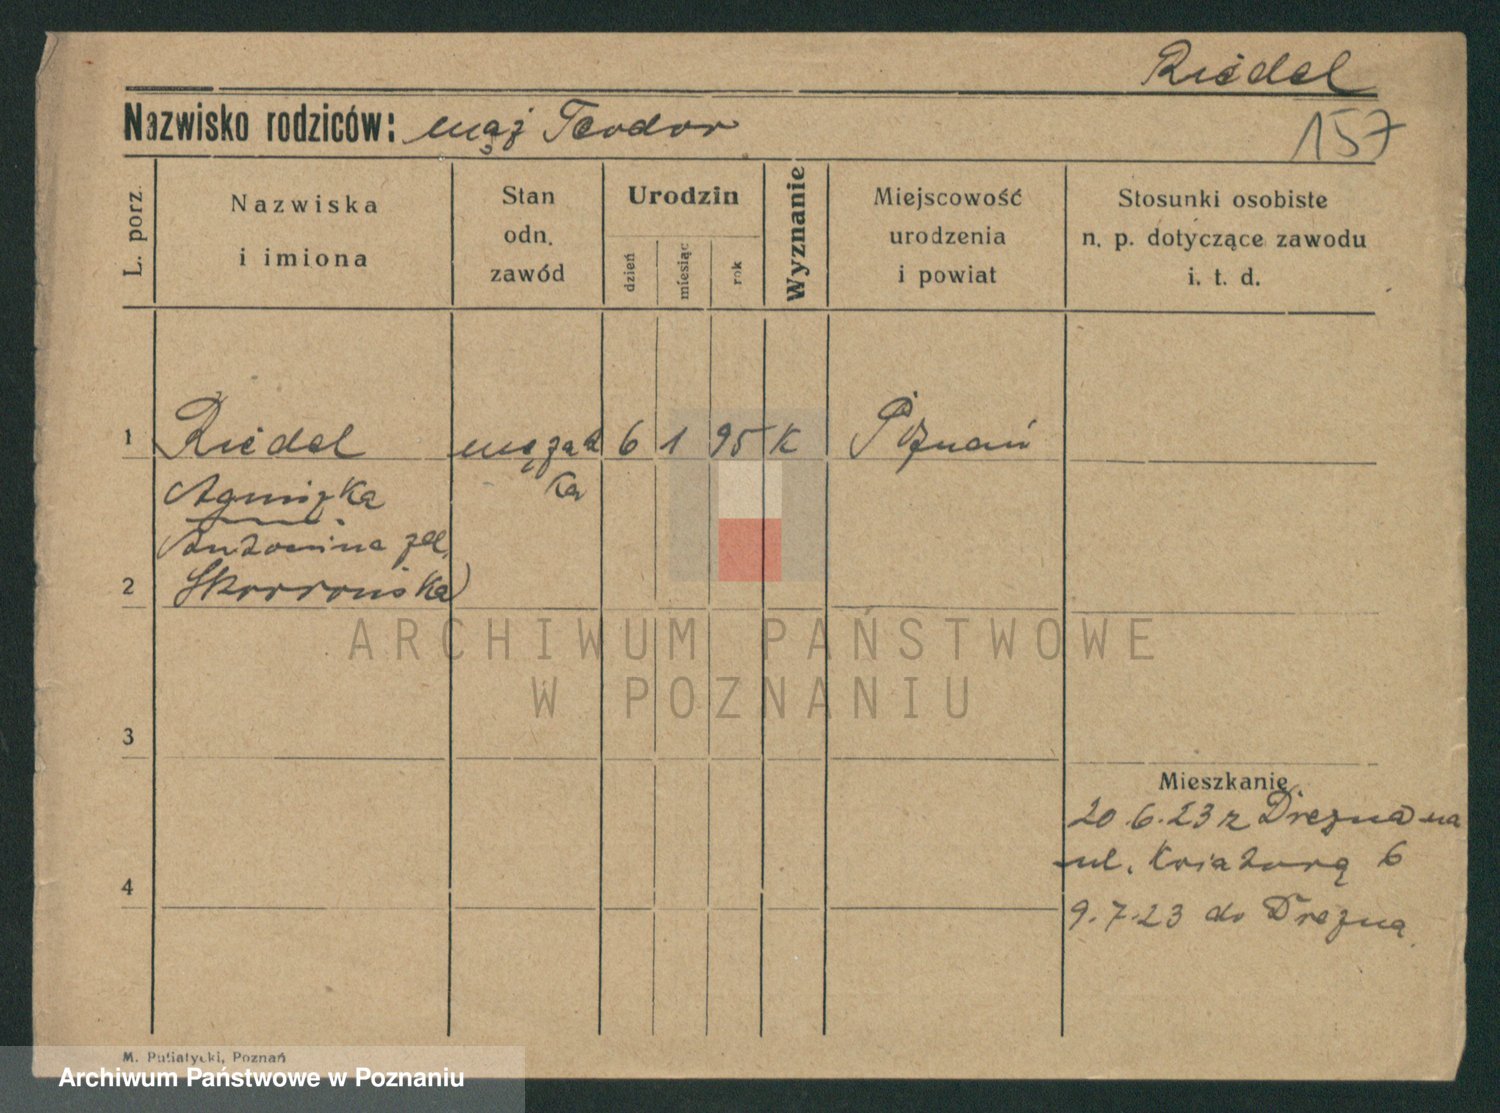 Riedel
Nazwisko rodziców: mąż Teodor
157
L. porz.
Nazwiska
i imiona
Stan
odn.
zawód
Urodzin
dzień
miesiąc
rok
Wyznanie
Miejscowość
urodzenia
i powiat
Stosunki osobiste
n. p. dotyczące zawodu
i. t. d.
1
Riedel
mężat
ka
6 1 95 K
Poznań
Agnieżka
Antonina
2
3
ARCHIWUM PAŃSTWOWE
W POZNANIU
Mieszkanie
20.6.23 z Drezna na
ul. 6
4
9.7.23 do Drezna
M. Putiatycki, Poznań
Archiwum Państwowe w Poznaniu